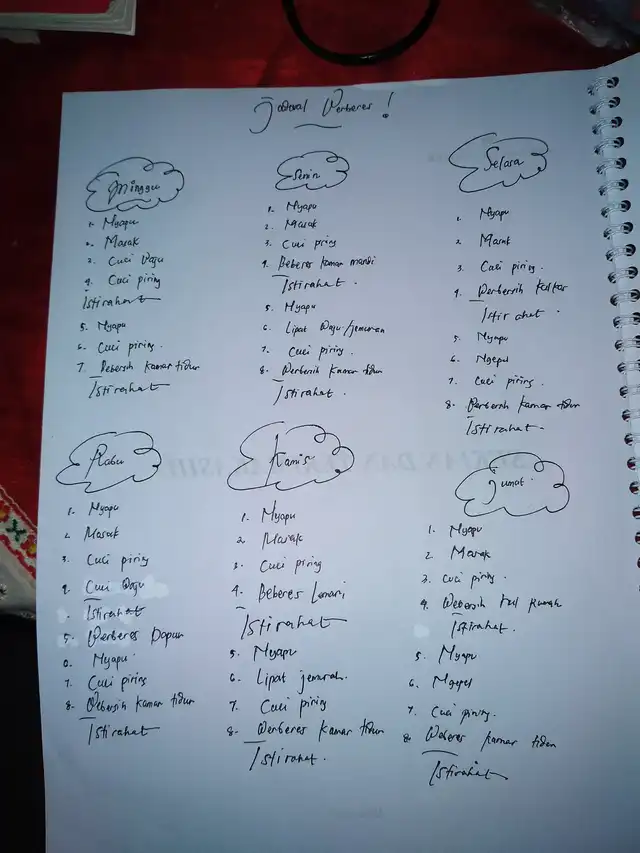 Jadwal Berberes !
Minggu
1. Nyapu
2. Masak
3. Cuci Baju
4. Cuci piring
Istirahat
5. Nyapu
6. Cuci piring.
7. Bebersih kamar tidur
Istirahat
Senin
1. Nyapu
2. Masak
3. Cuci piring
4. Beberes kamar mandi
Istirahat.
5. Nyapu
6. Lipat Baju/jemuran
7. Cuci piring.
8. Berbersih kamar tidur
Istirahat.
Selasa
1. Nyapu
2. Masak
3. Cuci piring.
4. Berbersih
Istirahat.
5. Nyapu
6. Ngepel
7. Cuci piring.
8. Berbersih kamar tidur
Istirahat.
Rabu
1. Nyapu
2. Masak
3. Cuci piring
4. Cuci Baju
Istirahat
5. Berberes Dapur
6. Nyapu.
7. Cuci piring
8. Bebersih kamar tidur
Istirahat
Kamis
1. Nyapu
2. Masak
3. Cuci piring
4. Beberes Lemari
Istirahat
5. Nyapu
6. Lipat jemuran.
7. Cuci piring
8. Berberes kamar tidur
Istirahat.
Jumat.
1. Nyapu
2. Masak
3. cuci piring.
4. Bebersih
Istirahat.
5. Nyapu
6. Ngepel
7. Cuci piring.
8. Beberes kamar tidur
Istirahat